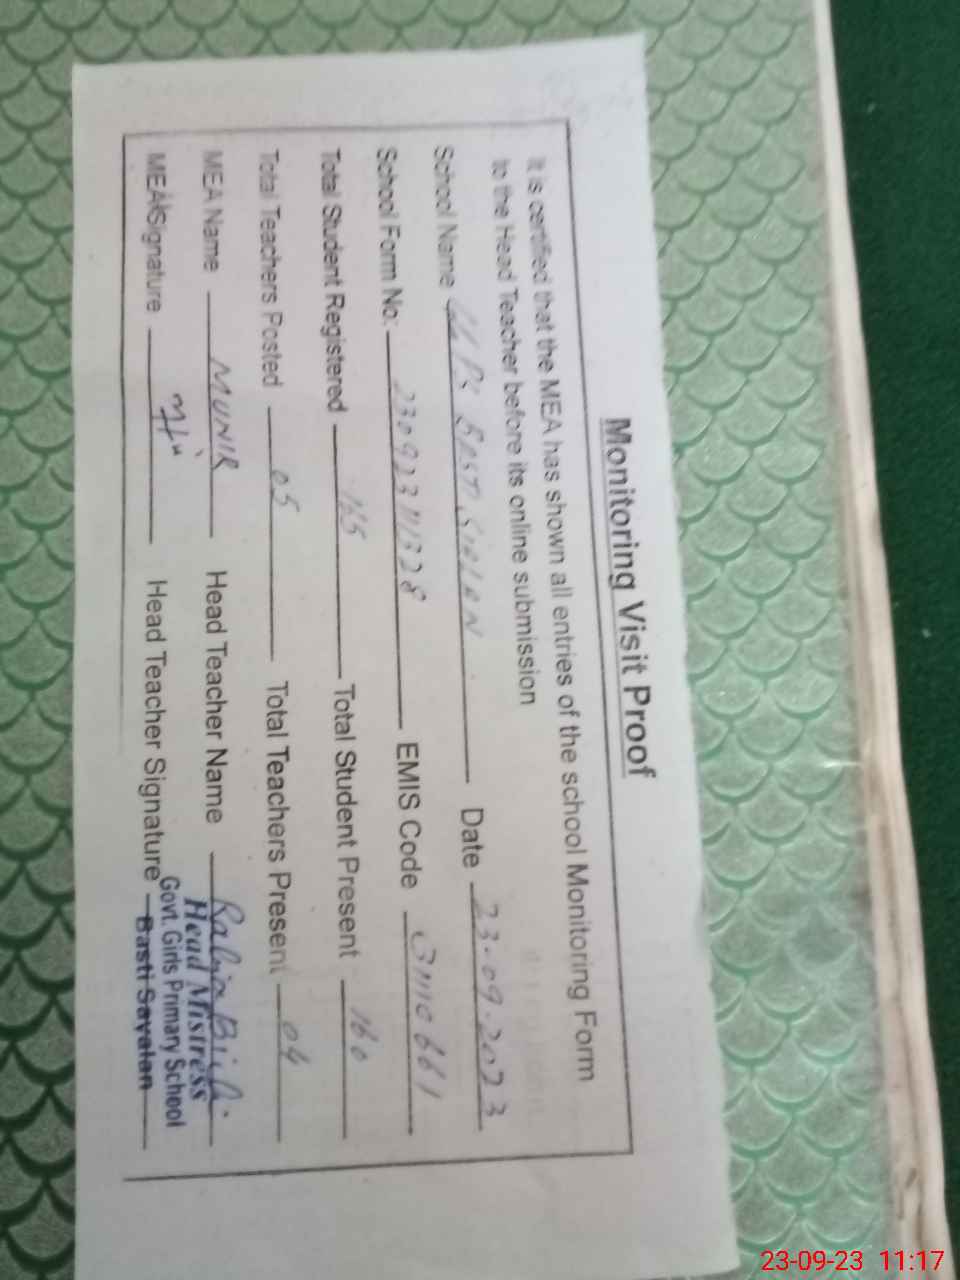 Monitoring Visit Proof
It is certified that the MEA has shown all entries of the school Monitoring Form
to the Head Teacher before its online submission
School Name Date 23.09.2023
School Form No: 23092311328 EMIS Code 31110661
Total Student Registered 165 Total Student Present 160
Total Teachers Posted 05 Total Teachers Present 04
MEA Name MUNIR Head Teacher Name Rabia Bibi
MEA Signature Head Teacher Signature
Head Mistress
Govt. Girls Primary School
Basti Sayalan
23-09-23 11:17